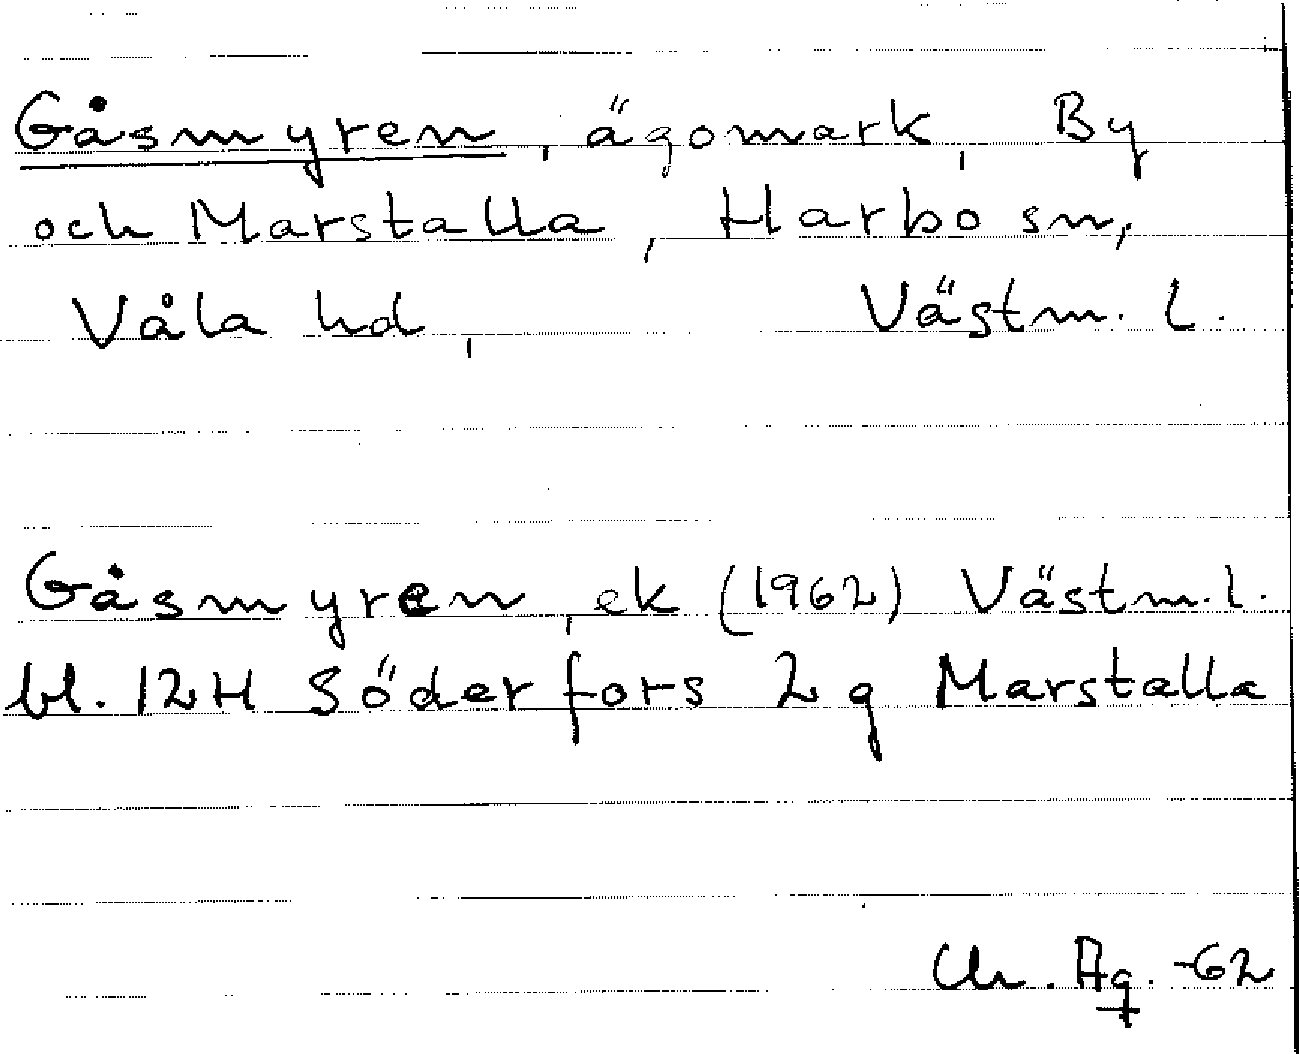 Gåsmyren, ägomark, By
och Marstalla, Harbo sn,
Våla hd, Västm. l.
Gåsmyren, ek (1962) Västm. l.
bl. 12H Söderfors 2 g Marstalla
Chr. Ag. -62